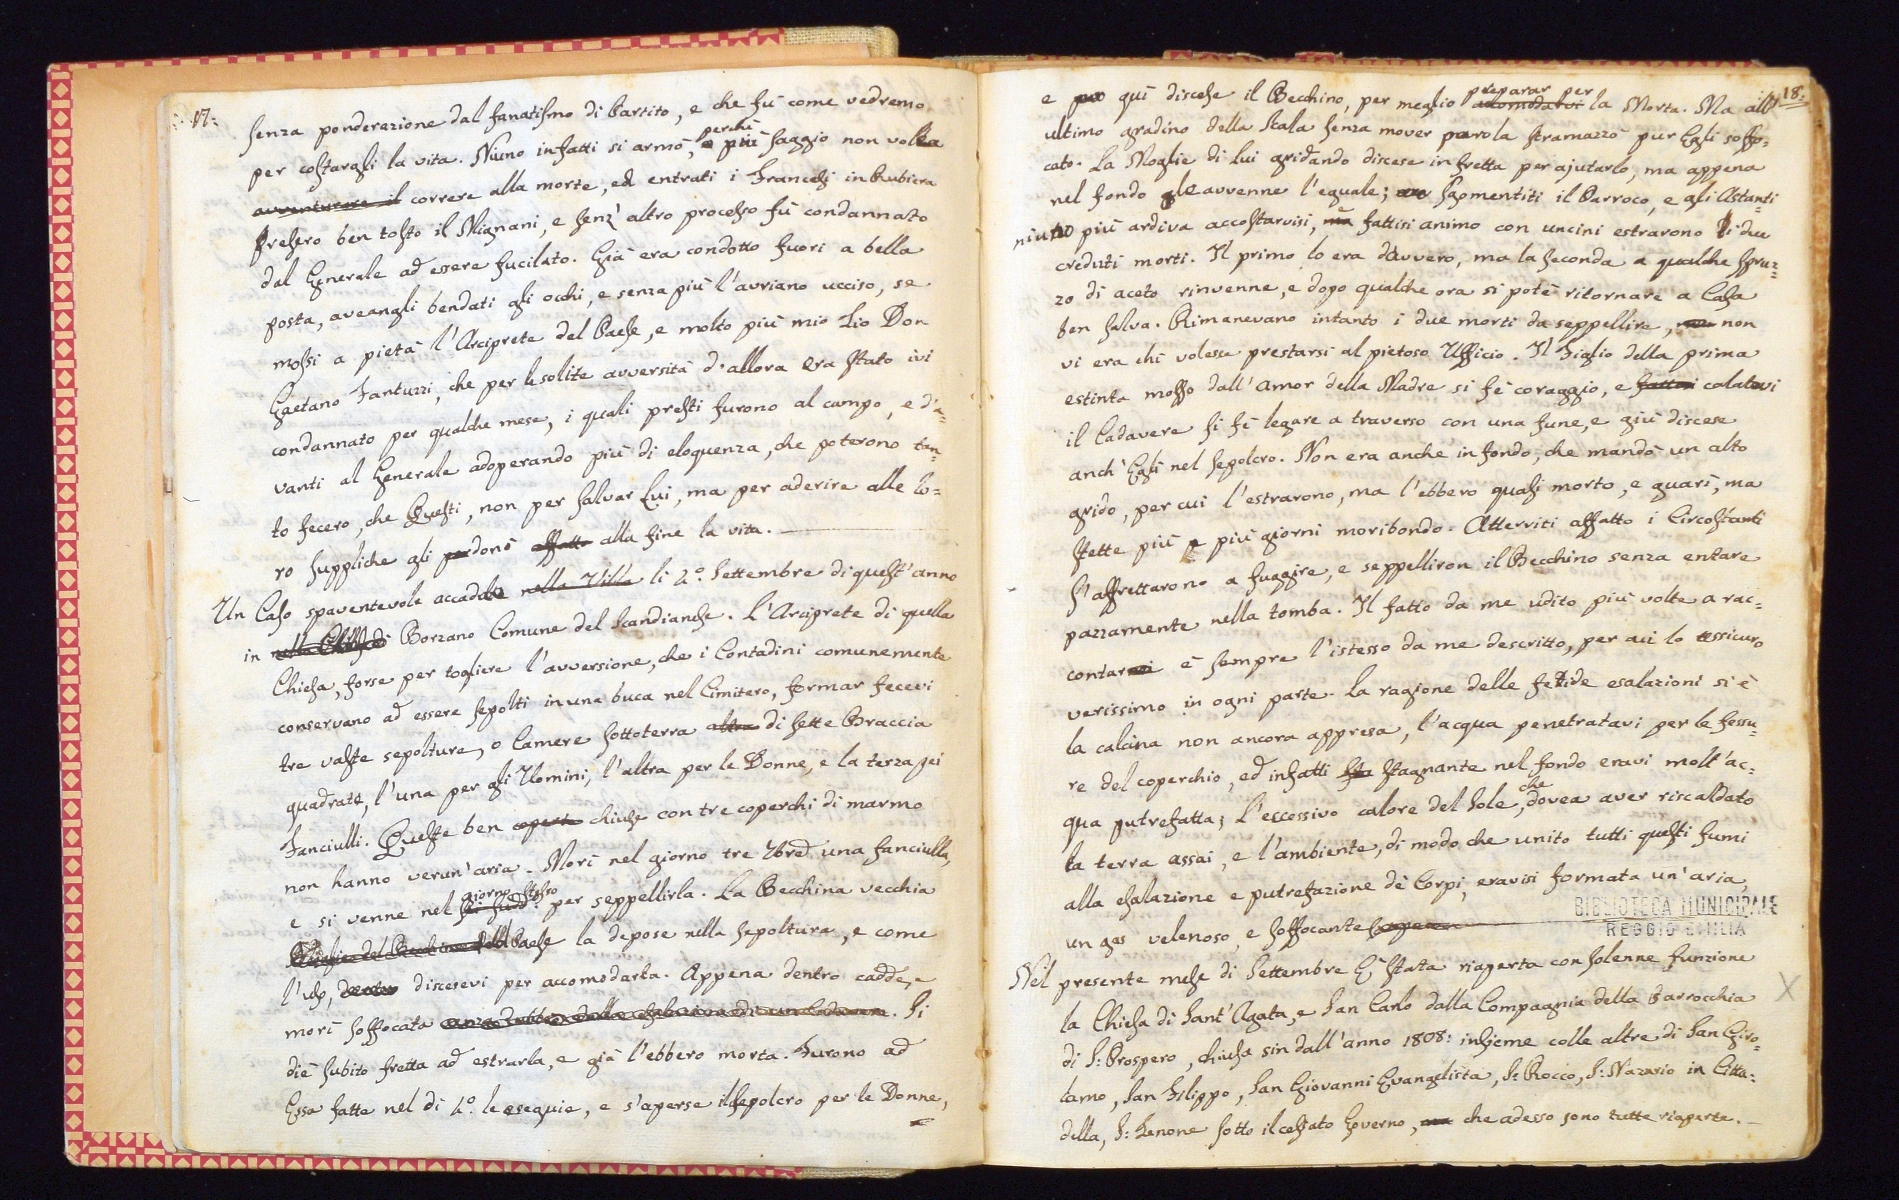 17.
senza ponderazione dal fanatismo di Partito, e che fù come vedremo
per costargli la vita. Niuno infatti si armò, perchi saggio non volea
avventurare il correre alla morte, ed entrati i Francesi in Rubiera
presero ben tosto il Mignani, e senz' altro processo fù condannato
dal Generale ad essere fucilato. Già era condotto fuori a bella
posta, aveangli bendati gli occhi, e senza più l'avriano ucciso, se
mossi a pietà l'Arciprete del Paese, e molto più mio Zio Don
Gaetano Fantuzzi, che per le solite avversità d'allora era stato ivi
condannato per qualche mese, i quali presti furono al campo, e d'a=
vanti al Generale adoperando più di eloquenza, che poterono tan=
to fecero, che Questi, non per salvar Lui, ma per aderire alle lo=
ro suppliche gli perdonò affatto alla fine la vita.
Un Caso spaventevole accadde nella Villa li 4º. Settembre di quest'anno
in Borzano Comune del Scandianese. L'Arciprete di quella
Chiesa, forse per togliere l'avversione, che i Contadini comunemente
conservano ad essere sepolti in una buca nel Cimitero, formar fecevi
tre vaste sepolture, o Camere sottoterra altra di sette Braccia
quadrate, l'una per gli Uomini, l'altra per le Donne, e la terza pei
Fanciulli. Queste ben coperte chiuse con tre coperchi di marmo
non hanno verun' aria. Morì nel giorno tre 7bre una fanciulla,
e si venne nel giorno stesso per seppellirla. La Becchina vecchia
la depose nella sepoltura, e come
l'uso, discesevi per accomodarla. Appena dentro cadde, e
morì soffocata senza dubbio dalla esalazione di un Cadavere. Si
diè subito fretta ad estrarla, e già l'ebbero morta. Furono ad
Essa fatte nel dì 4º. le esequie, e s'aperse il sepolcro per le Donne,
18.
e qui discese il Becchino, per meglio preparar per la Morta. Ma all'
ultimo gradino della scala senza mover parola stramazzò pur Egli soffo=
cato. La Moglie di Lui gridando discese in fretta per ajutarlo, ma appena
nel fondo gle avvenne l'eguale; sgomentiti il Parroco, e gli Astanti
niuno più ardiva accostarvisi, ma fattisi animo con uncini estrarono li due
creduti morti. Il primo lo era davvero, ma la seconda a qualche spruz=
zo di aceto rinvenne, e dopo qualche ora si potè ritornare a Casa
ben salva. Rimanevano intanto i due morti da seppellire, non
vi era chi volesse prestarsi al pietoso Ufficio. Il Figlio della prima
estinta mosso dall'amor della Madre si fè coraggio, e calatovi
il Cadavere si fè legare a traverso con una fune, e giù discese
anch' Egli nel sepolcro. Non era anche in fondo, che mandò un alto
grido, per cui l'estrarono, ma l'ebbero quasi morto, e guarì, ma
stette più e più giorni moribondo. Atterriti affatto i Circostanti
s'affrettarono a fuggire, e seppelliron il Becchino senza entrare
pazzamente nella tomba. Il fatto da me udito più volte a rac=
contarsi è sempre l'istesso da me descritto, per cui lo assicuro
verissimo in ogni parte. La ragione delle fetide esalazioni si è
la calcina non ancora appresa, l'acqua penetratavi per le fessu=
re del coperchio, ed infatti sta stagnante nel fondo eravi molt'ac=
qua putrefatta; l'eccessivo calore del Sole, che dovea aver riscaldato
la terra assai, e l'ambiente, di modo che unito tutti questi fumi
alla esalazione e putrefazione de' Corpi, eravisi formata un'aria,
un gas velenoso, e soffocante
BIBLIOTECA MUNICIPALE
REGGIO EMILIA
Nel presente mese di Settembre È stata riaperta con solenne funzione
la Chiesa di Sant'Agata, e San Carlo dalla Compagnia della Parrocchia
di S: Prospero, chiusa sin dall'anno 1808: insieme colle altre di San Giro=
lamo, San Filippo, San Giovanni Evangelista, S: Rocco, S: Nazario in Citta=
della, S: Zenone sotto il cessato Governo, ma che adesso sono tutte riaperte.